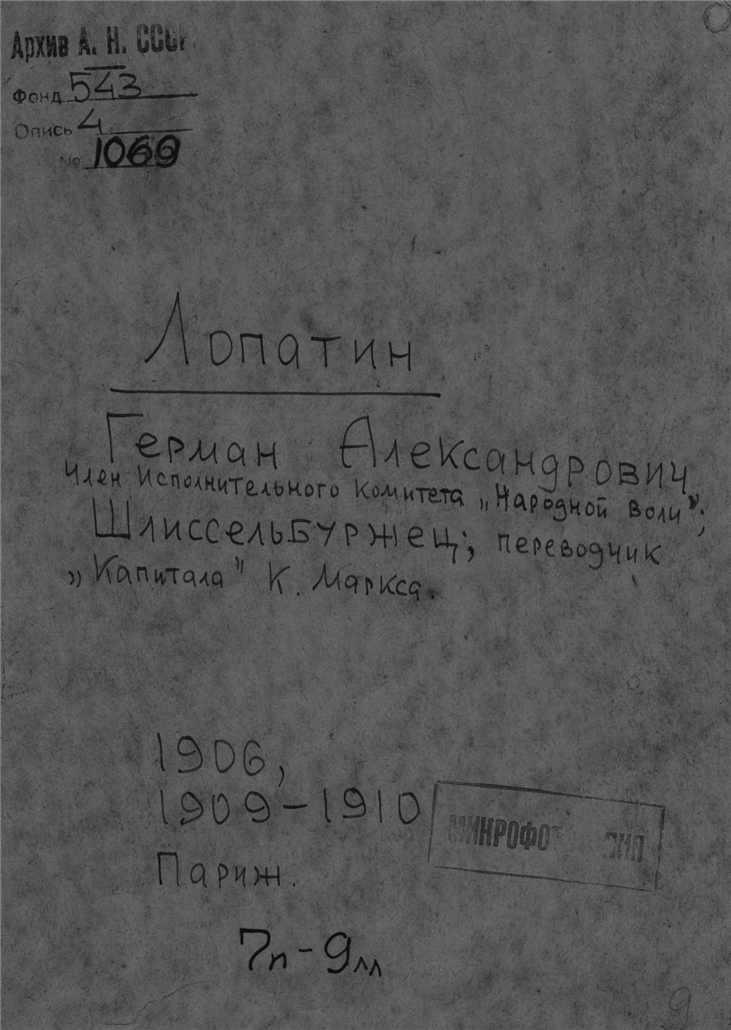 Архив А. Н. СССР
Фонд 543
Опись 4
№ 1069
Лопатин
Герман Александрович
Член Исполнительного Комитета „Народной Воли";
Шлиссельбуржец; переводчик
„Капитала" К. Маркса.
1906,
1909-1910
Париж.
7п-9лл
9